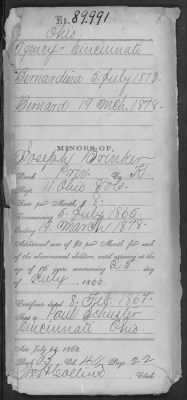 No. 89.991
Ohio.
Agency - Cincinnati
Bernardina 5. July 1873.
Bernard 19. Mch. 1878.
MINORS OF
Joseph Brinker
Rank Priv. Co. K
Regt. 11. Ohio Vols.
Rate per Month $ 8.
Commencing 5. July 1865
Ending 19. March, 1878.
Additional sum of $2 per Month for each
of the above-named children, until arriving at the
age of 16 years commencing 25 day
of July, 1866.
Certificate dated 8. Feb. 1867
Sent to Paul Schuster
Cincinnati Ohio.
Act July 14, 1862.
Clerk.